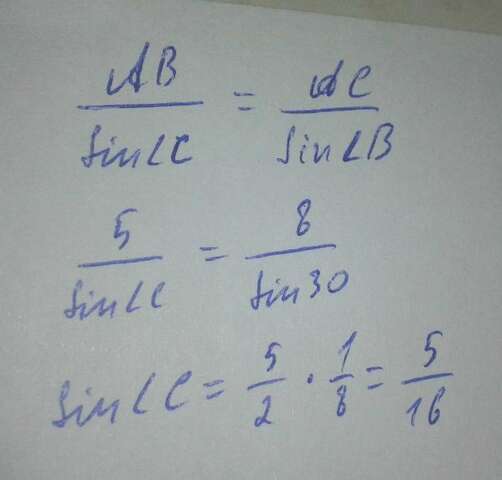 AB/sin∠C = AC/sin∠B
5/sin∠C = 8/sin30
sin∠C = 5/2 · 1/8 = 5/16